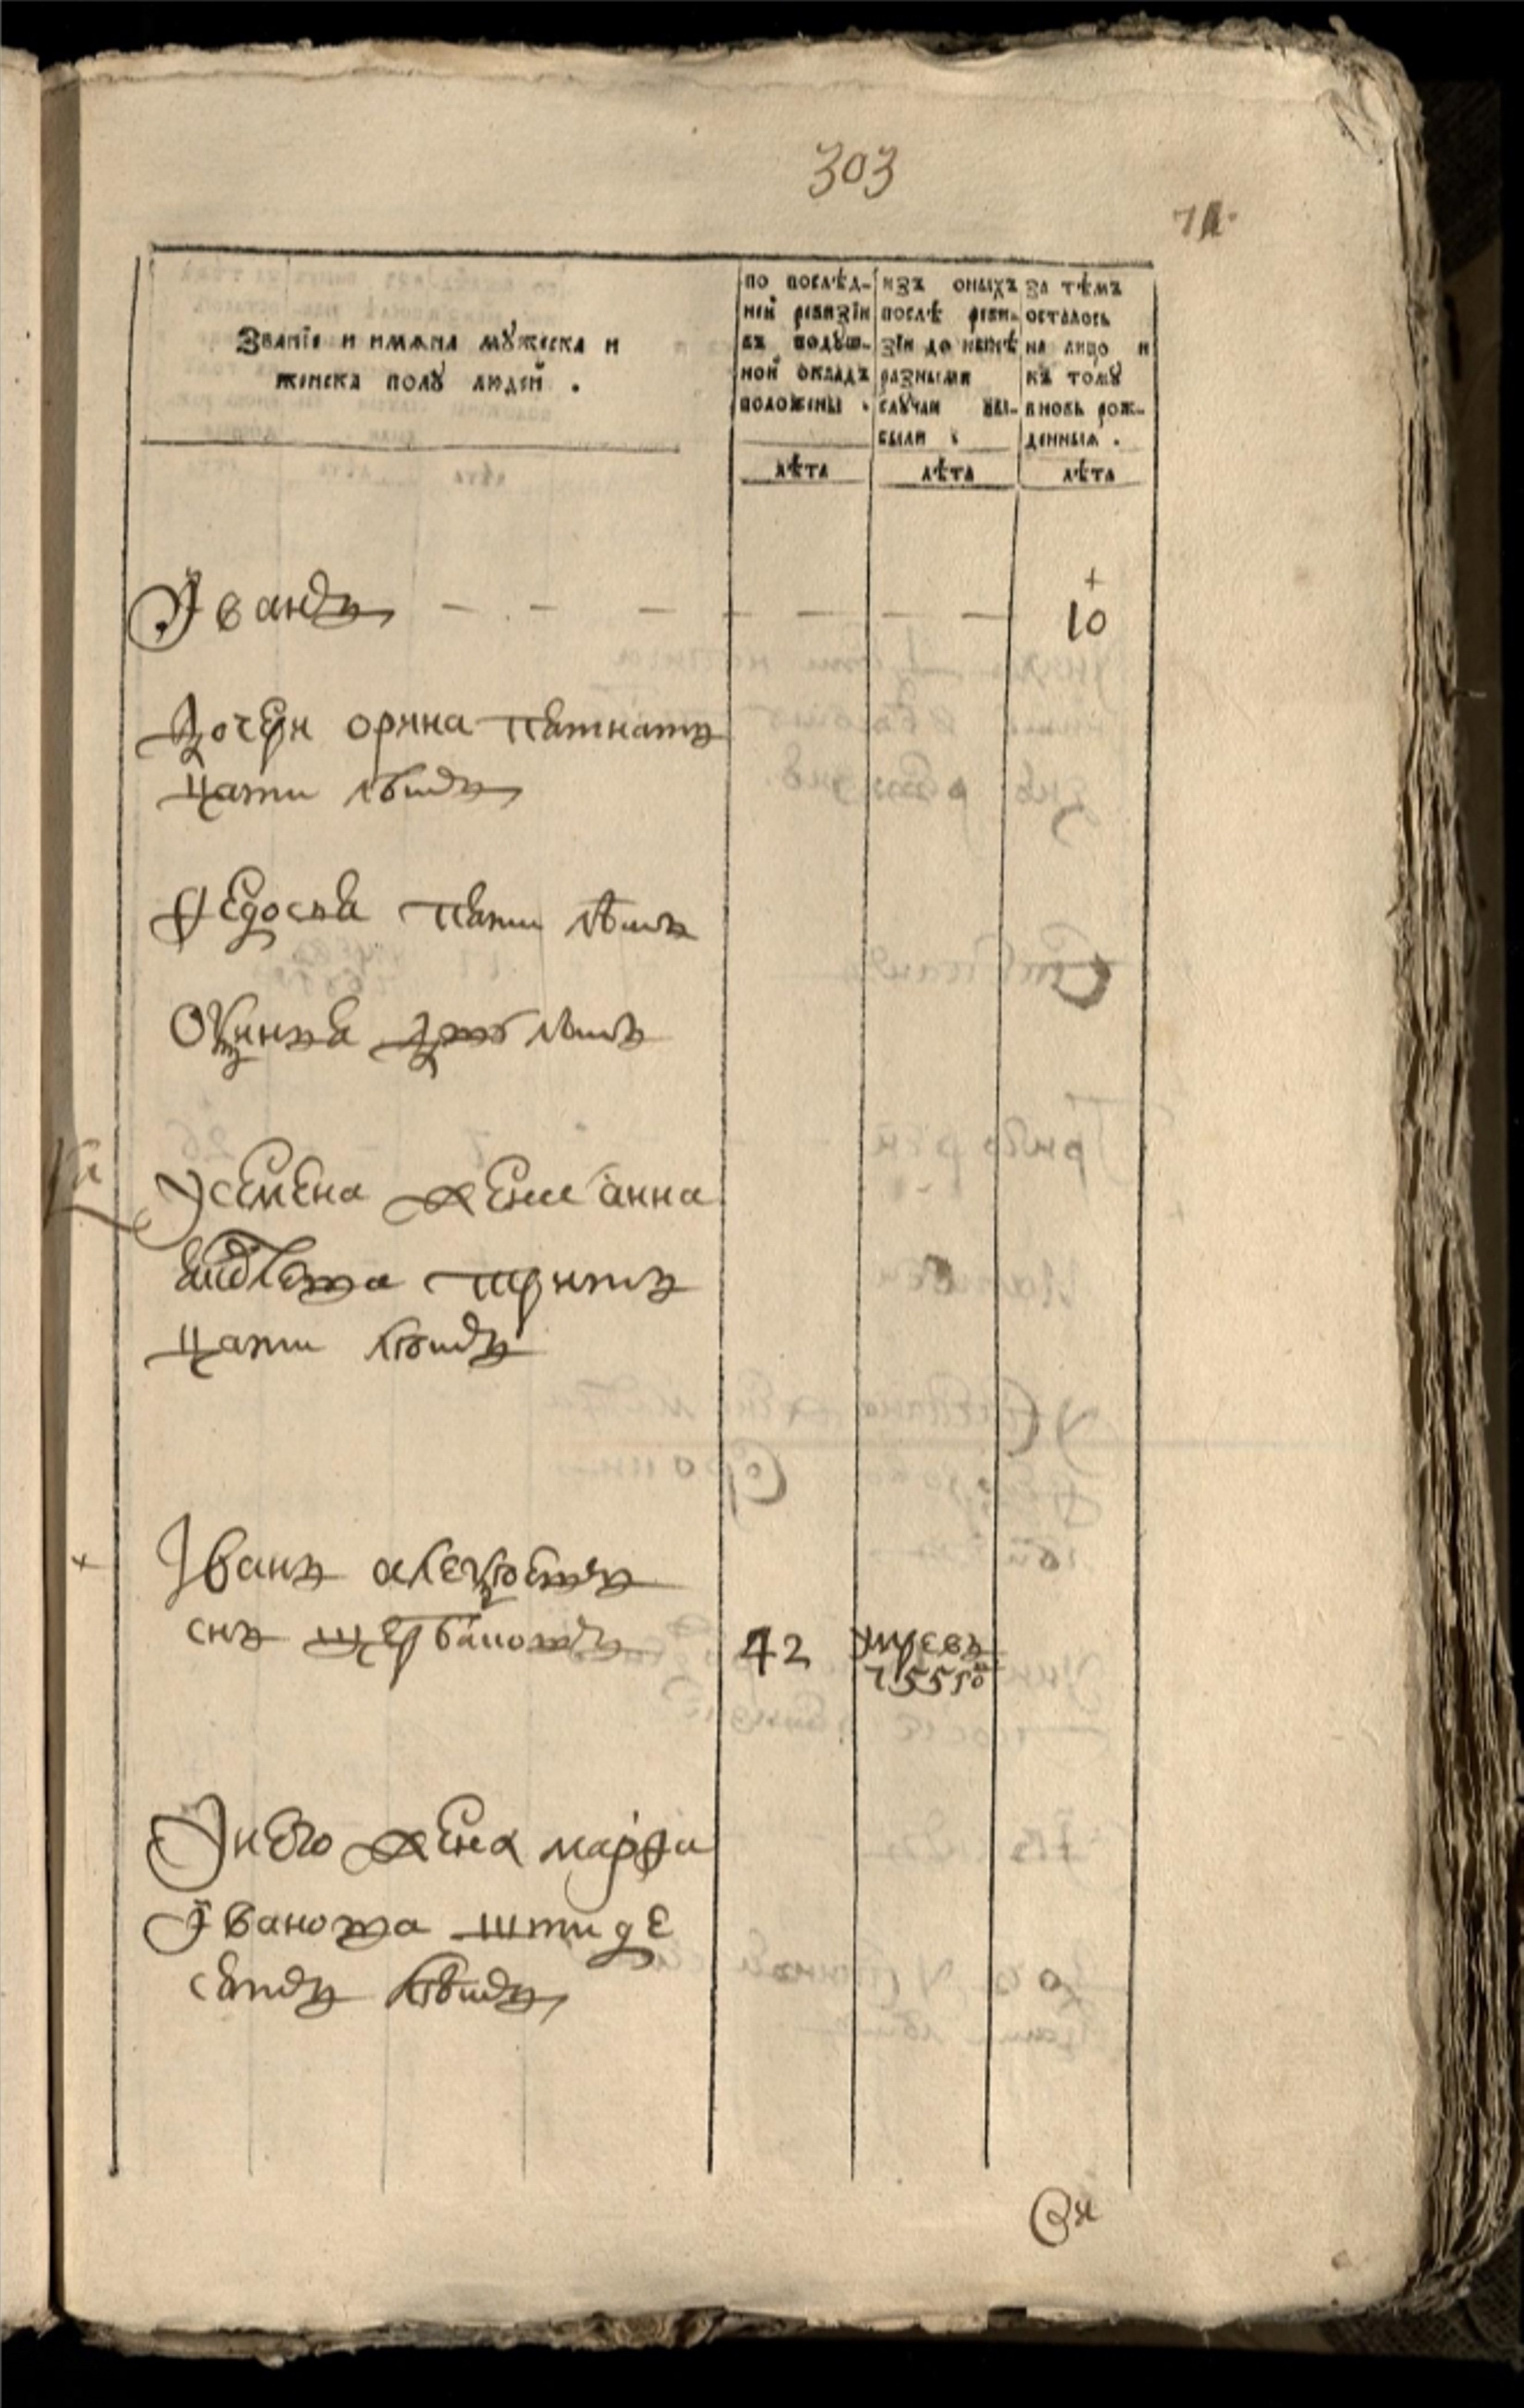 303
71.
Званїе и имѧна мꙋжеска и
женска полꙋ людей .
по послѣд-
ней ревизїи
въ подꙋш-
ной окладъ
положены .
изъ оныхъ
послѣ реви-
зїи до нынѣ
разными
слꙋчаи вы-
были .
За тѣмъ
осталось
на лицо и
къ томꙋ
вновь рож-
денныѧ .
лѣта
лѣта
лѣта
Їванъ 10
дочери орина петнатъ
цати лѣтъ
Федосья пети лѣтъ
дву лѣтъ
У семена жена анна
тритъ
цати лѣтъ
Іванъ алексѣевъ
снъ щербаковъ 42 умре въ
У него жена марфа
Їванова шти де
сетъ лѣтъ